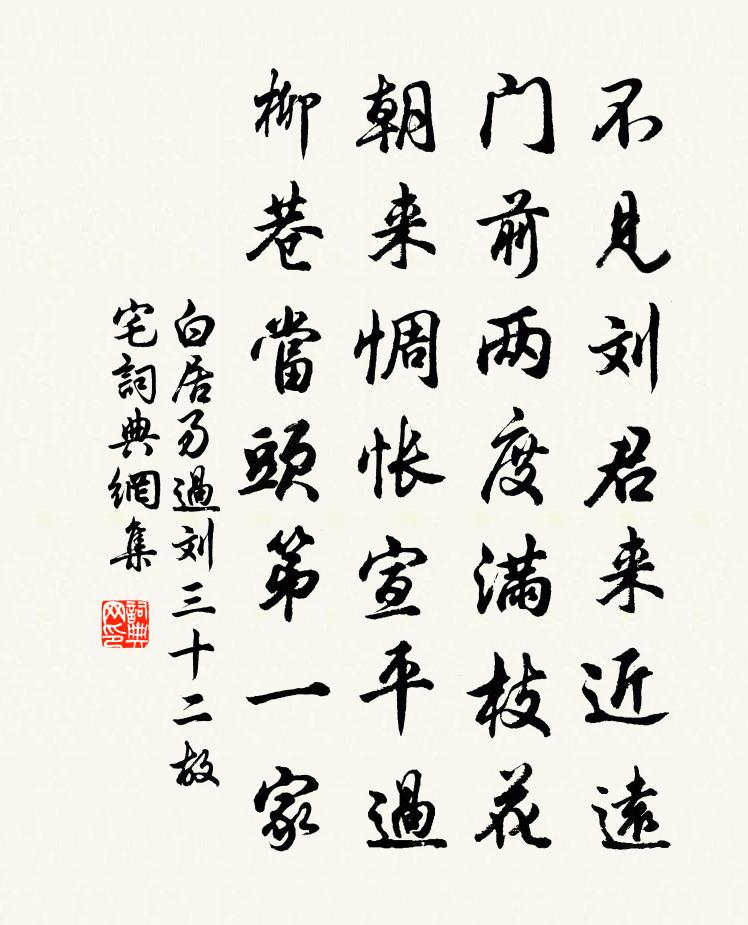 不見刘君来近遠
门前两度满枝花
朝来惆怅宣平過
柳巷當頭第一家
白居易過刘三十二故
宅詞典網集
詞典
网印